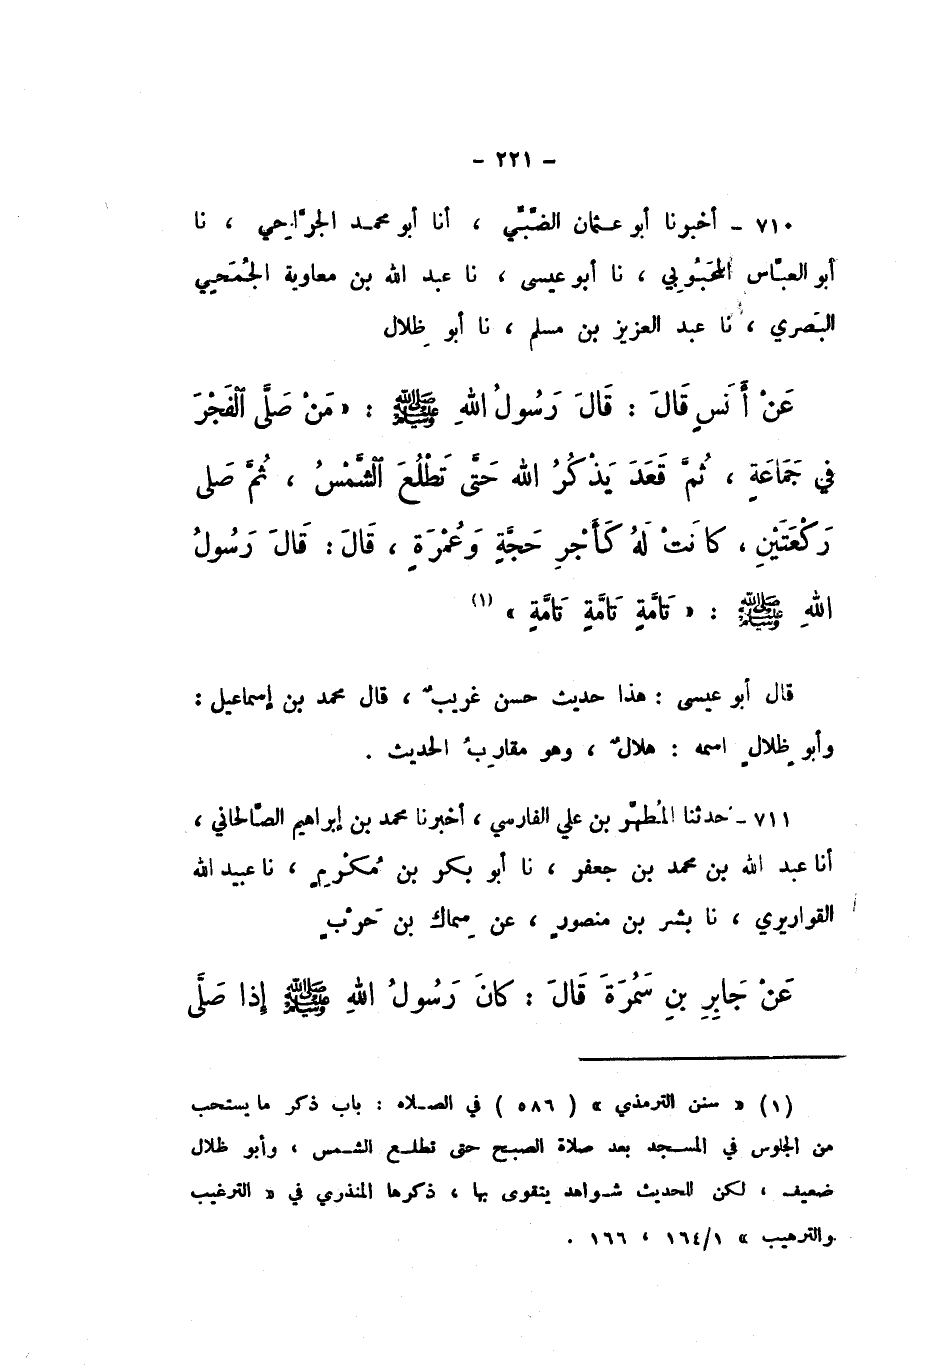 - ٢٢١ -
٧١٠ - أخبرنا أبو عثمان الضَّبِّي ، أنا أبو محمد الجرَّاحي ، نا
أبو العبَّاس المحْبُوبي ، نا أبو عيسى ، نا عبد الله بن معاوية الجُمَحِي
البَصري ، نا عبد العزيز بن مسلم ، نا أبو ظِلال
عَنْ أَنَسٍ قَالَ : قَالَ رَسُولُ اللهِ ﷺ : « مَنْ صَلَّى ٱلْفَجْرَ
في جَمَاعَةٍ ، ثُمَّ قَعَدَ يَذْكُرُ اللهَ حَتَّى تَطْلُعَ ٱلشَّمْسُ ، ثُمَّ صَلى
رَكْعَتَيْنِ ، كانَتْ لَهُ كَأَجْرِ حَجَّةٍ وَعُمْرَةٍ ، قَالَ : قَالَ رَسُولُ
اللهِ ﷺ : « تَامَّةٍ تَامَّةٍ تَامَّةٍ » (١)
قال أبو عيسى : هذا حديث حسن غريبٌ ، قال محمد بن إسماعيل :
وأبو ظِلالٍ اسمه : هلالٌ ، وهو مقارِبُ الحديث .
٧١١ - حدثنا المُطهَّر بن علي الفارسي ، أخبرنا محمد بن إبراهيم الصَّالحاني ،
أنا عبد الله بن محمد بن جعفر ، نا أبو بكر بن مُكْرِمٍ ، نا عبيد الله
القواريري ، نا بشر بن منصورٍ ، عن سِماك بن حَرْبٍ
عَنْ جَابِرِ بنِ سَمُرَةَ قَالَ : كانَ رَسُولُ اللهِ ﷺ إِذا صَلَّى
(١) « سنن الترمذي » ( ٥٨٦ ) في الصلاة : باب ذكر ما يستحب
من الجلوس في المسجد بعد صلاة الصبح حتى تطلع الشمس ، وأبو ظلال
ضعيف ، لكن للحديث شواهد يتقوى بها ، ذكرها المنذري في « الترغيب
والترهيب » ١٦٤/١ ، ١٦٦ .